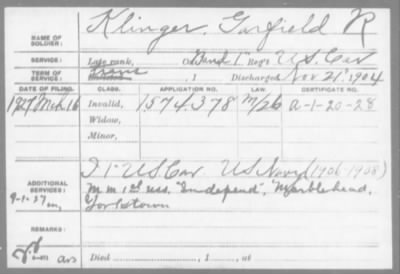 NAME OF SOLDIER: Klinger, Garfield R
SERVICE: Late rank, Co. Band 1" Reg't U.S. Cav
TERM OF SERVICE: Trans , 1 Discharged Nov 21, 1904
DATE OF FILING. CLASS. APPLICATION NO. LAW. CERTIFICATE NO.
1927 Mch 16 Invalid, 1574.378 M/26 A-1-20-28
Widow,
Minor,
ADDITIONAL SERVICES: I 1" U.S. Cav. U.S. Navy (1906-1908)
9-1-27 M M 1st U.S.S. "Independ", "Marblehead,
Yorktown
REMARKS:
Died , 1 , at